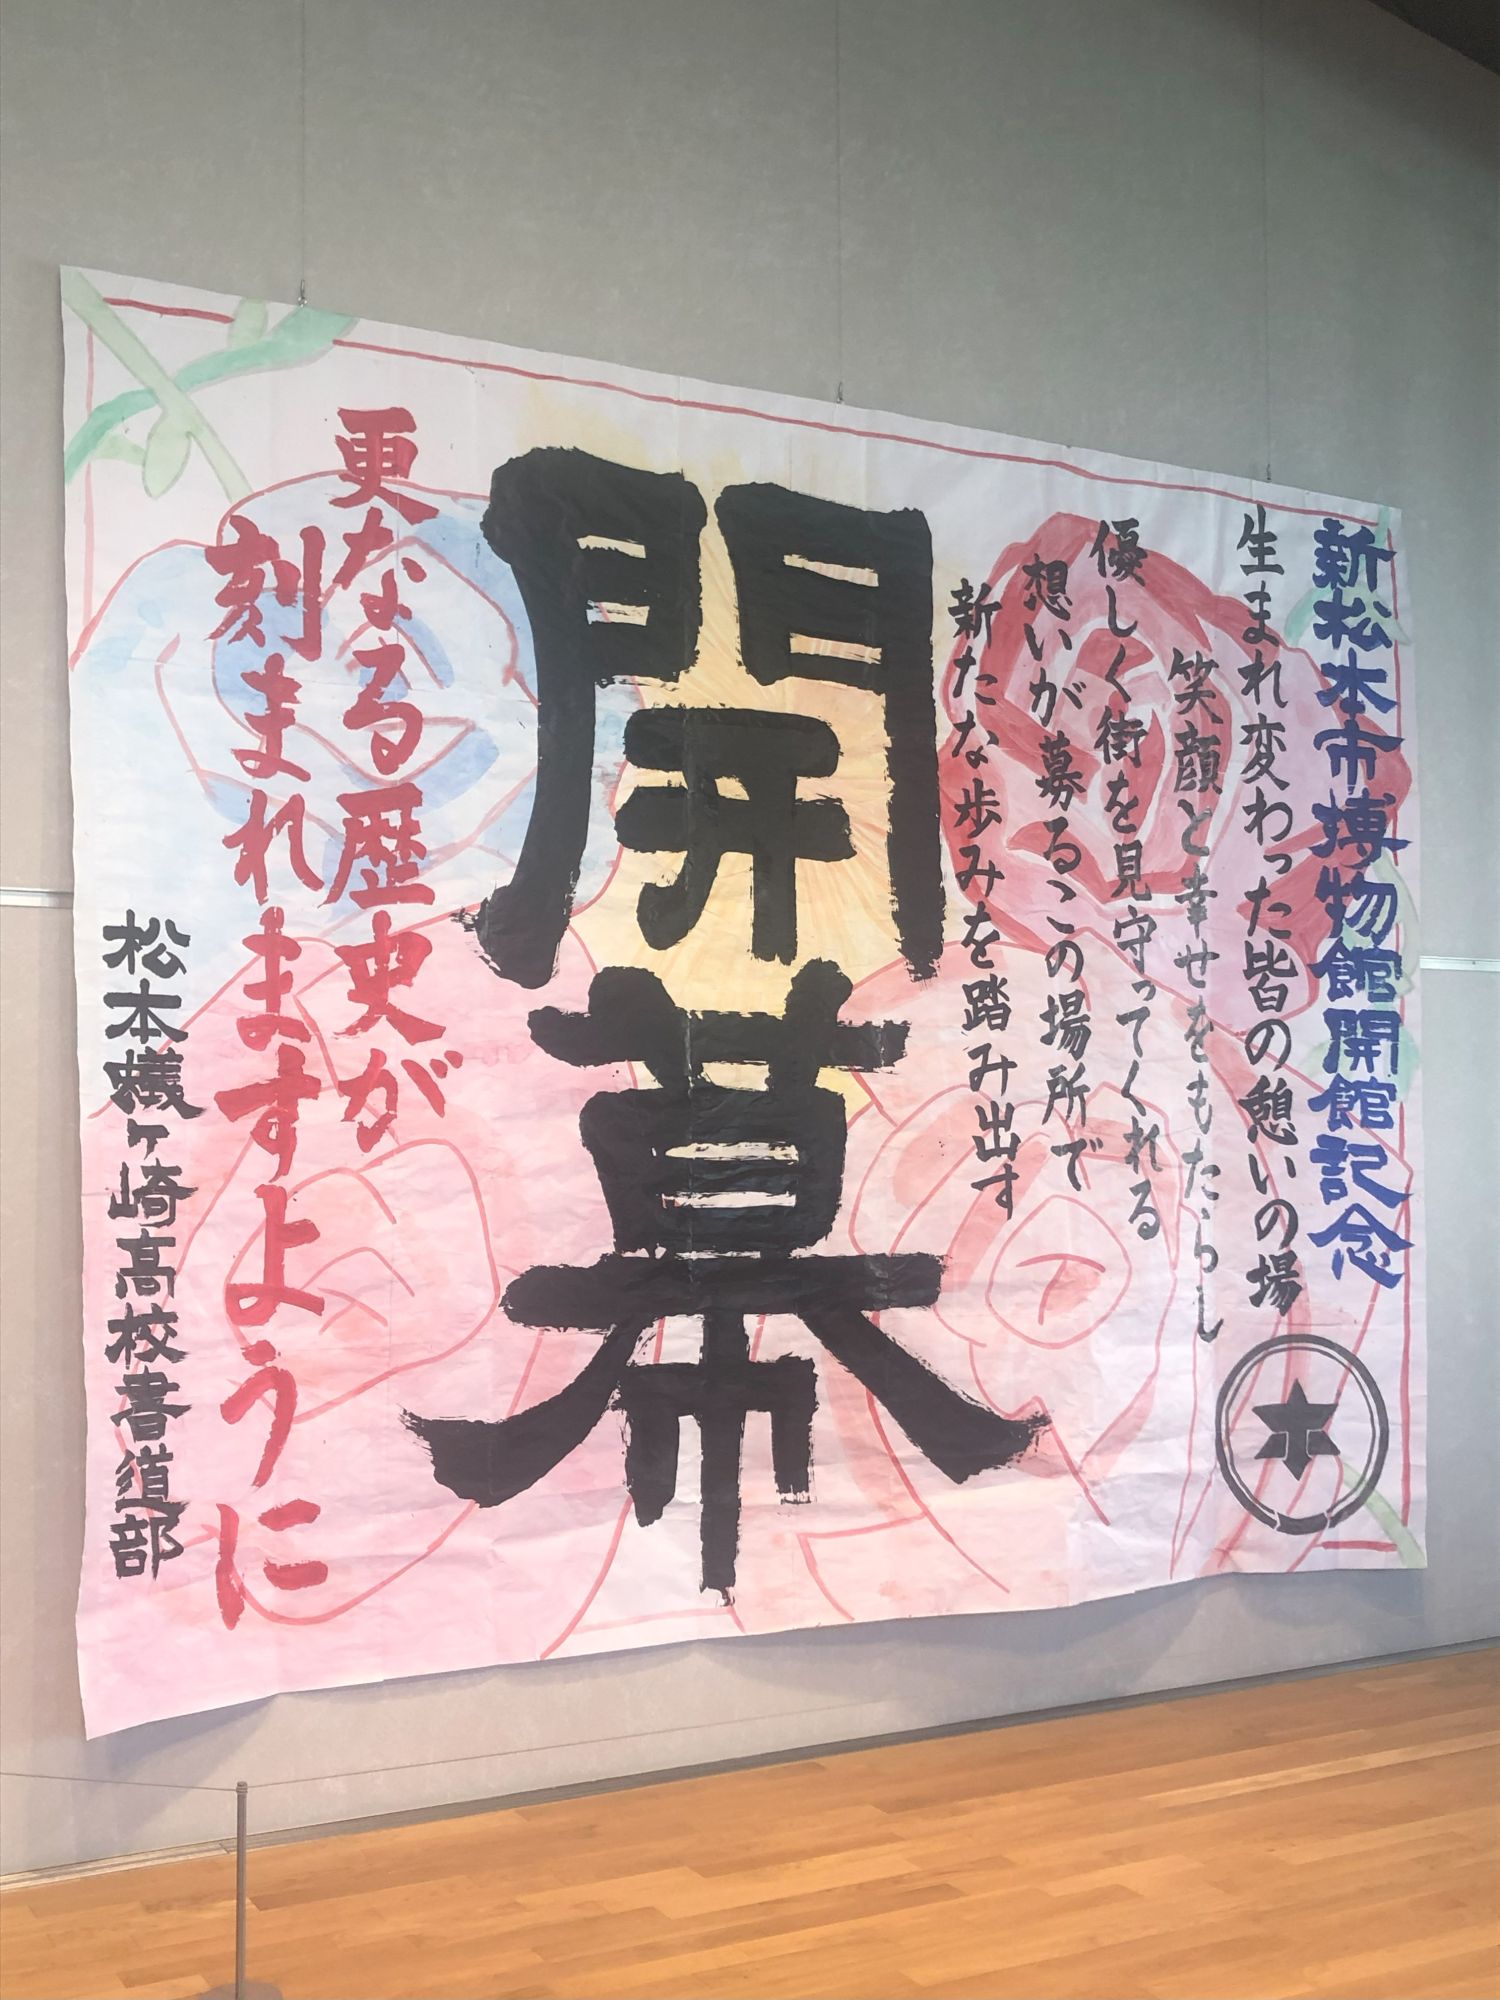 新松本市博物館開館記念
生まれ変わった皆の憩いの場
笑顔と幸せをもたらし
優しく街を見守ってくれる
想いが募るこの場所で
新たな歩みを踏み出す
開幕
更なる歴史が
刻まれますように
松本蟻ヶ崎高校書道部
本